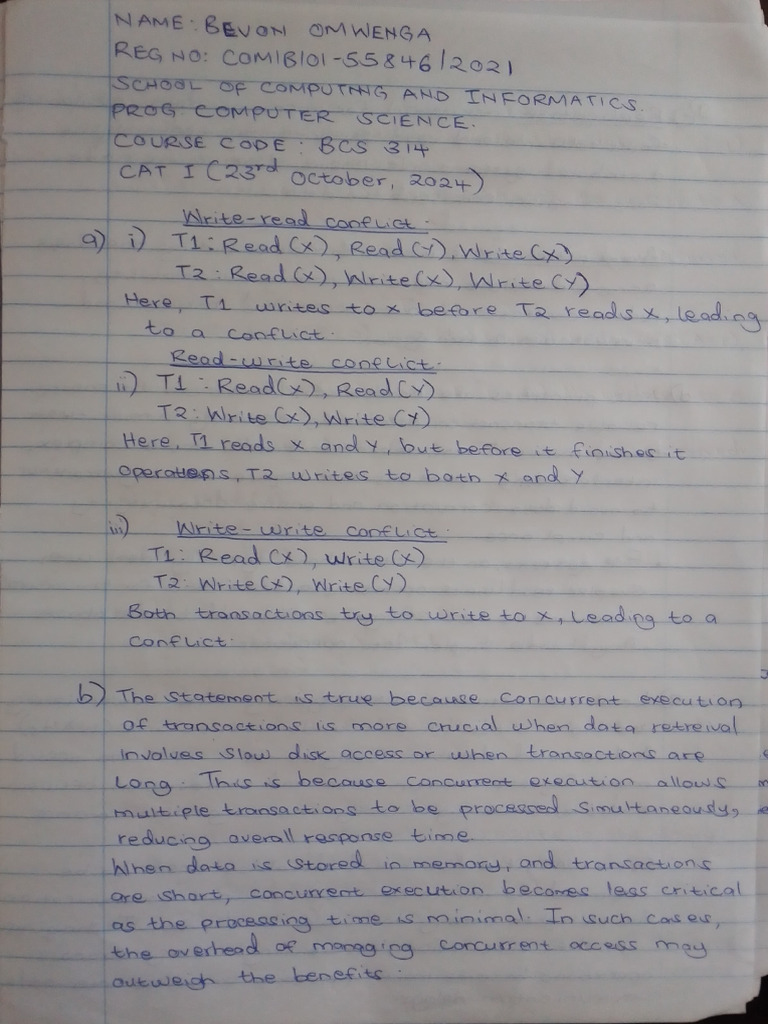 NAME: BEVON OMWENGA
REG NO: COM/B/01-55846/2021
SCHOOL OF COMPUTNG AND INFORMATICS.
PROG COMPUTER SCIENCE.
COURSE CODE: BCS 314
CAT I (23rd October, 2024)
Write-read conflict.
a) i) T1: Read(X), Read(Y), Write(X)
T2: Read(X), Write(X), Write(Y)
Here, T1 writes to x before T2 reads x, leading
to a conflict.
Read-write conflict.
ii) T1: Read(X), Read(Y)
T2: Write(X), Write(Y)
Here, T1 reads x and Y, but before it finishes it
operations, T2 writes to both x and Y
iii) Write-write conflict.
T1: Read(X), Write(X)
T2: Write(X), Write(Y)
Both transactions try to write to x, leading to a
conflict.
b) The statement is true because concurrent execution
of transactions is more crucial when data retreival
involves slow disk access or when transactions are
long. This is because concurrent execution allows
multiple transactions to be processed simultaneously,
reducing overall response time.
When data is stored in memory, and transactions
are short, concurrent execution becomes less critical
as the processing time is minimal. In such cases,
the overhead of managing concurrent access may
outweigh the benefits.